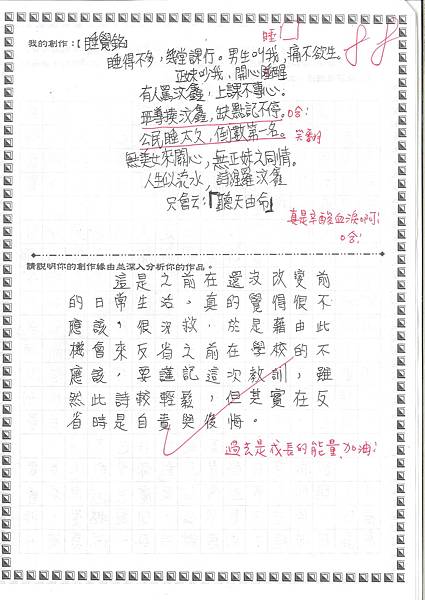 睡
88
我的創作:【睡覺銘】
睡得不多,幾堂課行。男生叫我,痛不欲生。
正妹叫我,開心睡醒
有人罵汶鑫,上課不專心。
班導揍汶鑫,缺點記不停。哈!
公民睡太久,倒數第一名。
無美女來關心,無正妹之同情。
人生似流水,
只會云:「聽天由命」
真是辛酸血淚啊!
哈!
請說明你的創作緣由並深入分析你的作品。
這是之前在還沒改變前
的日常生活,真的覺得很不
應該,很沒救,於是藉由此
機會來反省之前在學校的不
應該,要謹記這次教訓,雖
然此詩較輕鬆,但其實在反
省時是自責與後悔。
過去是成長的能量,加油!